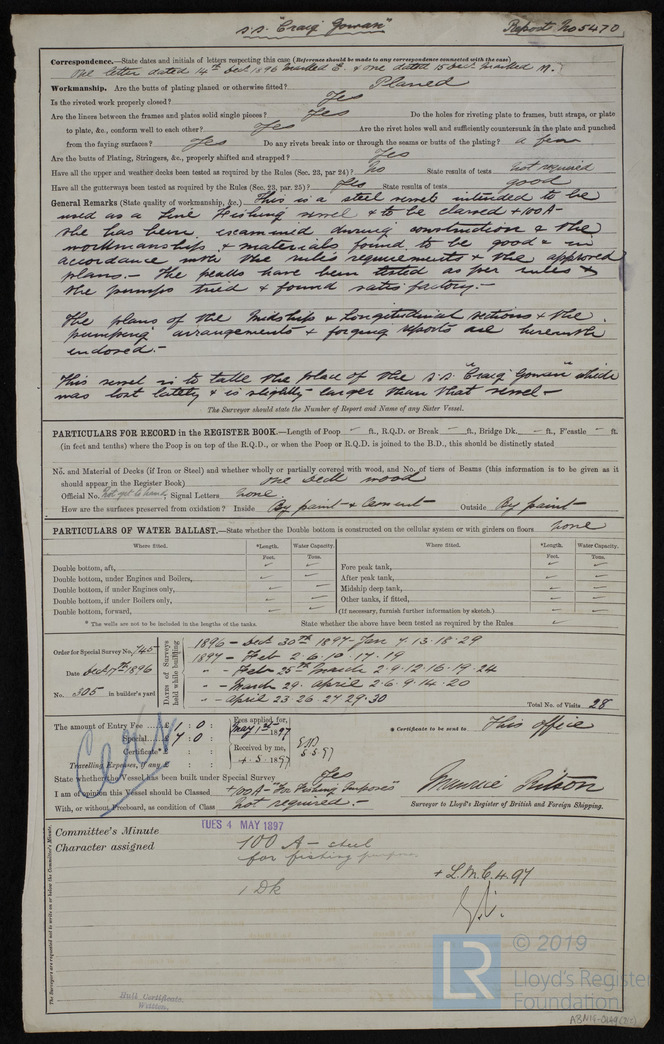 s.s. "Craig Gowan"
Report No 5470
Correspondence.—State dates and initials of letters respecting this case (Reference should be made to any correspondence connected with the case)
One letter dated 14th Dec 1896 marked E. & one dated 15 Dec. marked M.
Workmanship. Are the butts of plating planed or otherwise fitted? Planed
Is the riveted work properly closed? Yes
Are the liners between the frames and plates solid single pieces? Yes Do the holes for riveting plate to frames, butt straps, or plate
to plate, &c., conform well to each other? Yes Are the rivet holes well and sufficiently countersunk in the plate and punched
from the faying surfaces? Yes Do any rivets break into or through the seams or butts of the plating? a few
Are the butts of Plating, Stringers, &c., properly shifted and strapped? Yes
Have all the upper and weather decks been tested as required by the Rules (Sec. 23, par 24)? No State results of tests not required
Have all the gutterways been tested as required by the Rules (Sec. 23, par. 25)? Yes State results of tests good
General Remarks (State quality of workmanship, &c.) This is a steel vessel intended to be
used as a Line Fishing vessel & to be classed +100A-
She has been examined during construction & the
workmanship & materials found to be good & in
accordance with the rules requirements & the approved
plans.- The peaks have been tested as per rules &
the pumps tried & found satisfactory.-
The plans of the Midship & Longitudinal sections & the
pumping arrangements & forging reports are herewith
enclosed.-
This vessel is to take the place of the s.s. "Craig Gowan" which
was lost lately & is slightly larger than that vessel-
The Surveyor should state the Number of Report and Name of any Sister Vessel.
PARTICULARS FOR RECORD in the REGISTER BOOK.—Length of Poop - ft., R.Q.D. or Break - ft., Bridge Dk. - ft., F'castle - ft.
(in feet and tenths) where the Poop is on top of the R.Q.D., or when the Poop or R.Q.D. is joined to the B.D., this should be distinctly stated
No. and Material of Decks (if Iron or Steel) and whether wholly or partially covered with wood, and No. of tiers of Beams (this information is to be given as it
should appear in the Register Book) one deck wood
Official No. Not yet to hand Signal Letters None
How are the surfaces preserved from oxidation? Inside By paint & cement Outside By paint-
PARTICULARS OF WATER BALLAST.—State whether the Double bottom is constructed on the cellular system or with girders on floors None
Where fitted. *Length. Water Capacity. Where fitted. *Length. Water Capacity.
Feet. Tons. Feet. Tons.
Double bottom, aft, - - Fore peak tank, - -
Double bottom, under Engines and Boilers, - - After peak tank, - -
Double bottom, if under Engines only, - - Midship deep tank, - -
Double bottom, if under Boilers only, - - Other tanks, if fitted, - -
Double bottom, forward, - - (If necessary, furnish further information by sketch.)
* The wells are not to be included in the lengths of the tanks. State whether the above have been tested as required by the Rules -
Order for Special Survey No. 745
Date Dec 17th 1896
No. 305 in builder's yard
Dates of Surveys held while building
1896 - Dec 30th 1897 - Jan 7. 13. 18. 29
1897 - Feb 2. 6. 10. 17. 19
" - Feb 25th March 2. 9. 12. 16. 19. 24
" - March 29. April 2. 6. 9. 14. 20
" - April 23 26. 27 29. 30
Total No. of Visits 28
The amount of Entry Fee £ 1 : 0 :
Special £ 7 : 0 :
Certificate* £ : :
Travelling Expenses, if any £ : :
Fees applied for, May 1st 1897
Received by me, 4.5.1897
5.5.97
* Certificate to be sent to This office
State whether the Vessel has been built under Special Survey Yes
I am of opinion this Vessel should be Classed +100A-"For Fishing Purposes"
With, or without Freeboard, as condition of Class not required.-
Surveyor to Lloyd's Register of British and Foreign Shipping.
Committee's Minute
TUES 4 MAY 1897
Character assigned
100 A- steel
for fishing purposes
1 Dk
+ L.M.C. 4.97
The Surveyors are requested not to write on or below the Committee's Minute.
Hull Certificate
Written.
LR
© 2019
Lloyd's Register
Foundation